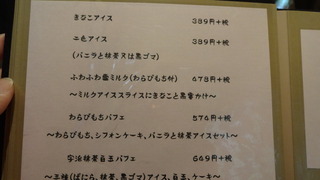 きなこアイス 389円+税
二色アイス 389円+税
(バニラと抹茶又は黒ゴマ)
ふわふわ雪ミルク(わらびもち付) 678円+税
～ミルクアイススライスにきなこと黒蜜かけ～
わらびもちパフェ 574円+税
～わらびもち、シフォンケーキ、バニラと抹茶アイスセット～
宇治抹茶白玉パフェ 669円+税
～三種(ばにら、抹茶、黒ゴマ)アイス、白玉、ケーキ～